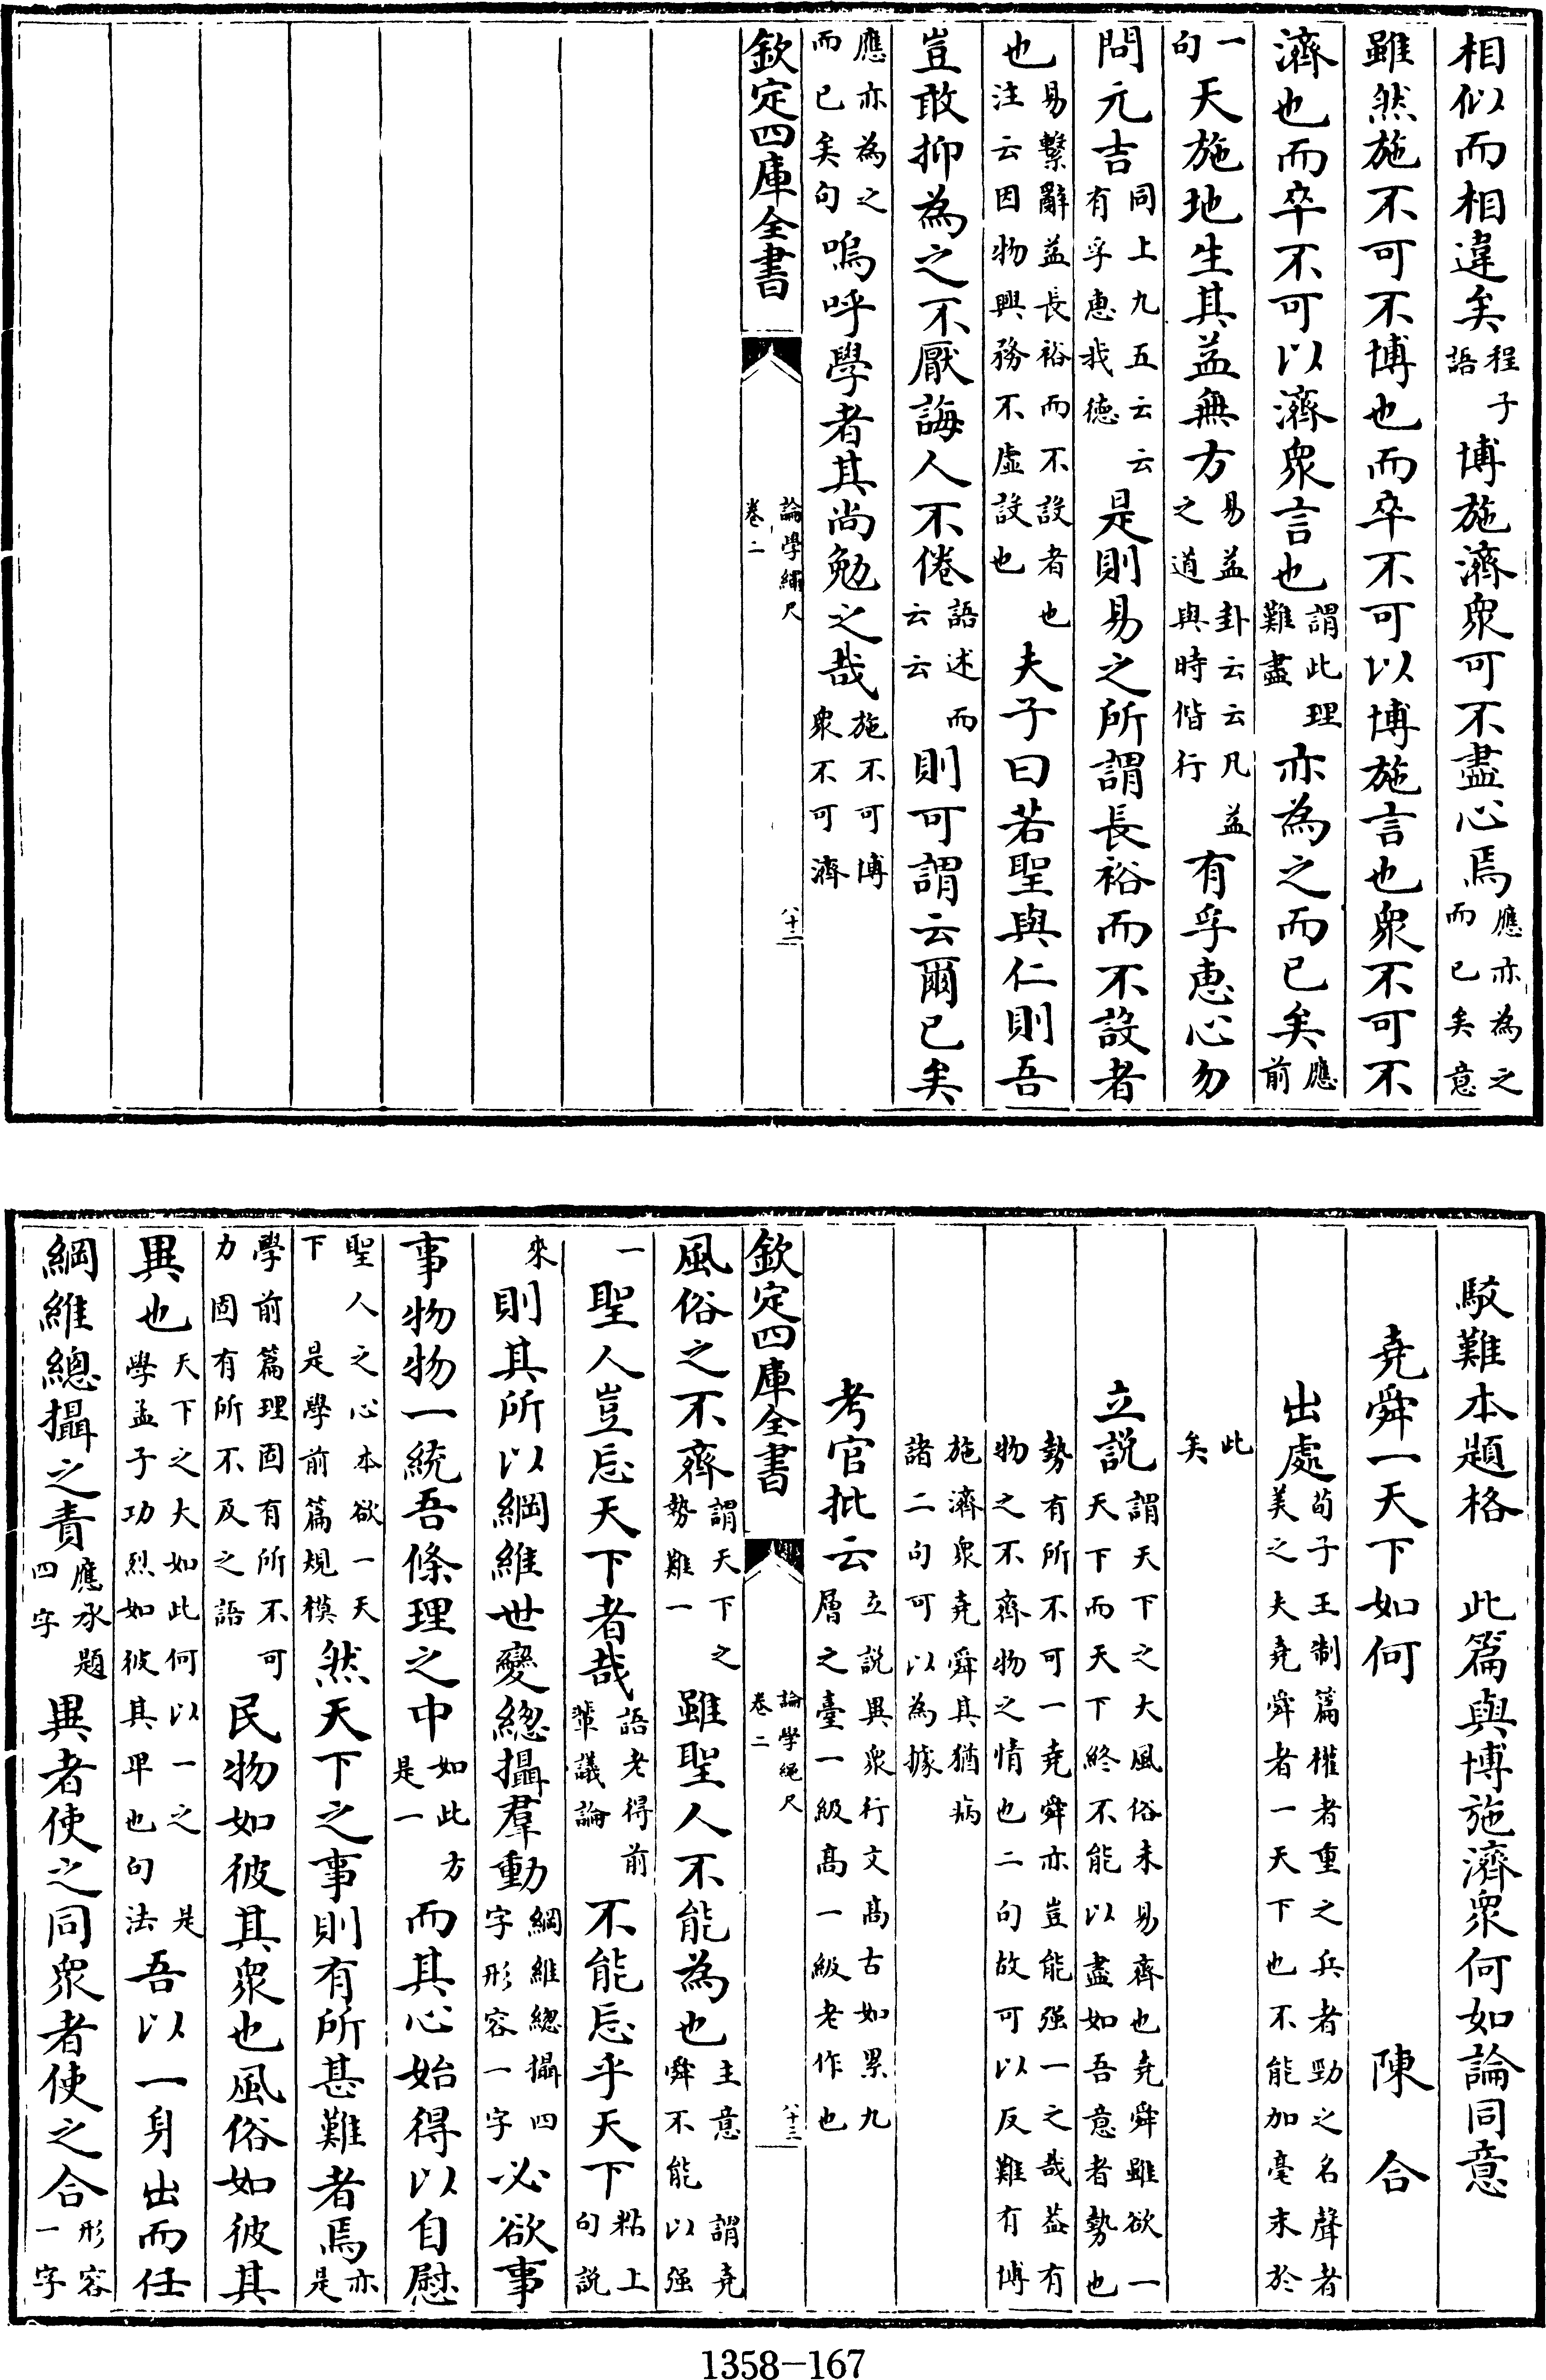 相似而相違矣程子語博施濟衆可不盡心焉應亦為之而已矣意
雖然施不可不博也而卒不可以博施言也衆不可不
濟也而卒不可以濟衆言也謂此理難盡亦為之而已矣應前
一句天施地生其益無方易益卦云云凡益之道與時偕行有孚惠心勿
問元吉同上九五云云有孚惠我德是則易之所謂長裕而不設者
也易繫辭益長裕而不設者也注云因物興務不虛設也夫子曰若聖與仁則吾
豈敢抑為之不厭誨人不倦語述而云云則可謂云爾已矣
應亦為之而已矣句嗚呼學者其尚勉之哉施不可博衆不可濟
欽定四庫全書
論學繩尺卷二
八十二
駮難本題格 此篇與博施濟衆何如論同意
堯舜一天下如何 陳合
出處荀子王制篇權者重之兵者勁之名聲者美之夫堯舜者一天下也不能加毫末於
此矣
立説謂天下之大風俗未易齊也堯舜雖欲一天下而天下終不能以盡如吾意者勢也
勢有所不可一堯舜亦豈能强一之哉蓋有物之不齊物之情也二句故可以反難有博
施濟衆堯舜其猶病諸二句可以為據
考官批云立説異衆行文髙古如累九層之臺一級髙一級老作也
欽定四庫全書
論學繩尺卷二
八十三
風俗之不齊謂天下之勢難一雖聖人不能為也主意謂堯舜不能以强
一聖人豈忘天下者哉語老得前輩議論不能忘乎天下粘上句説
來則其所以綱維世變緫攝羣動綱維緫攝四字形容一字必欲事
事物物一統吾條理之中如此方是一而其心始得以自慰
聖人之心本欲一天下是學前篇規模然天下之事則有所甚難者焉亦是
學前篇理固有所不可力固有所不及之語民物如彼其衆也風俗如彼其
異也天下之大如此何以一之是學孟子功烈如彼其卑也句法吾以一身出而任
綱維總攝之責應承題四字異者使之同衆者使之合形容一字
1358-167